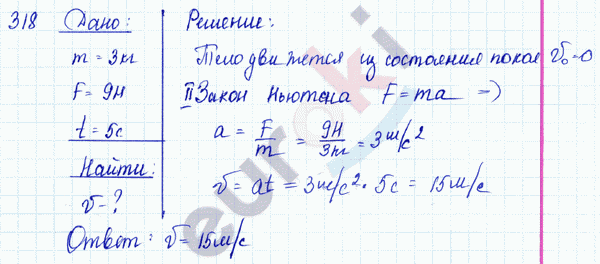 318 Дано:
m = 3кг
F = 9Н
t = 5с
Найти:
v - ?
Решение:
Тело движется из состояния покоя v₀=0
II Закон Ньютона F = ma =>
a = F/m = 9Н/3кг = 3м/с²
v = at = 3м/с² · 5с = 15м/с
Ответ: v = 15м/с
euroki